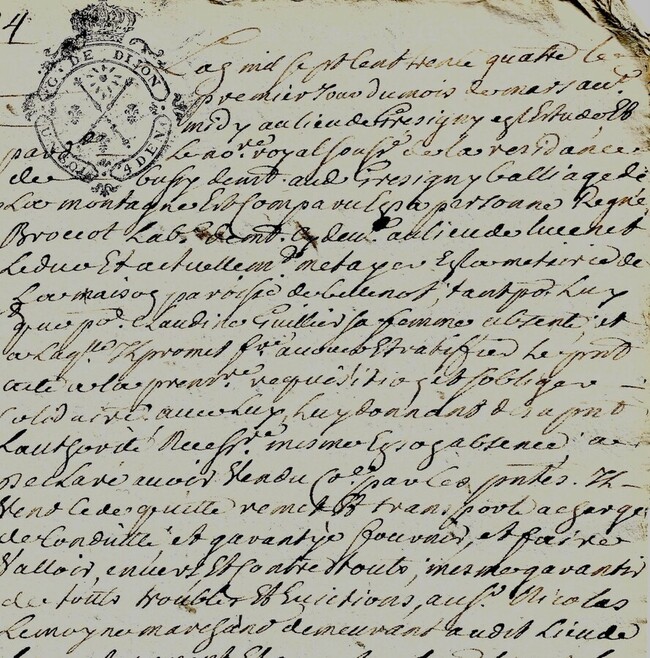 4
G. DE DIJON
Lan mil sept Cent trente quatre le
premier Jour du mois de mars au.
midy au lieu de Fresigny en Estude Et
par Le no.re royal sous.e de la residance
de bussy dem.t aud Fresigny balliage de
La montagne Est Comparu en sa personne Regne
Broccot Lab.r dem.t cy dev.t au lieu de Lucenet
Leduc Et actuellem.t metayer En la metairie de
La maison paroisse de bellenot, tant po.r Luy
que po.r Claudine Guillier sa femme absente, et
a Laq.lle Il promet f.re avouer Et ratiffier Le pnt
acte a la prem.re requisition et sobliger
solidaire.t avec Luy, Luy donnant des a pnt
Lauthorité Necess.re mesme En son absence, a
Declaré avoir Vendu Co.e par Les pntes. Il
Vend Cede quitte remet Et transporte a charge
de Conduitte et garantye fournir, et faire
Valloir, envers Et Contre touts, mesme garantir
de touts troubles Et Evictions, au S.r Nicolas
Lemoyne marchand demeurant audit Lieu de